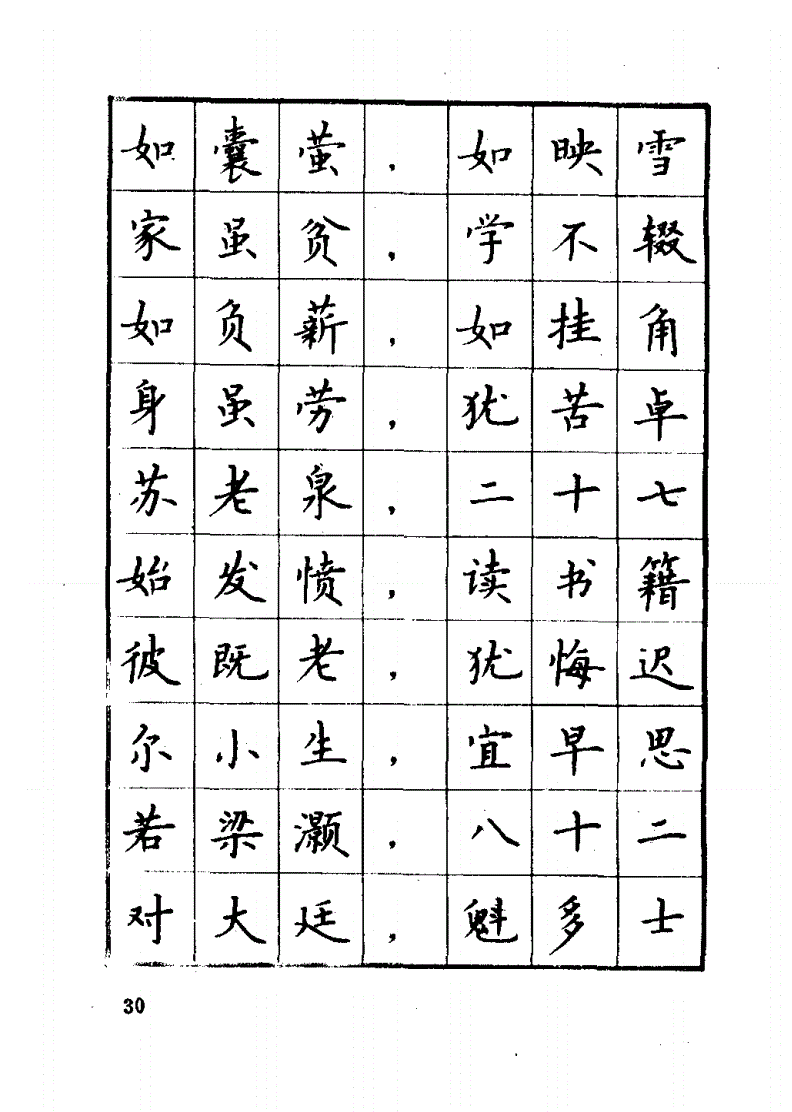 如囊萤，如映雪
家虽贫，学不辍
如负薪，如挂角
身虽劳，犹苦卓
苏老泉，二十七
始发愤，读书籍
彼既老，犹悔迟
尔小生，宜早思
若梁灏，八十二
对大廷，魁多士
30